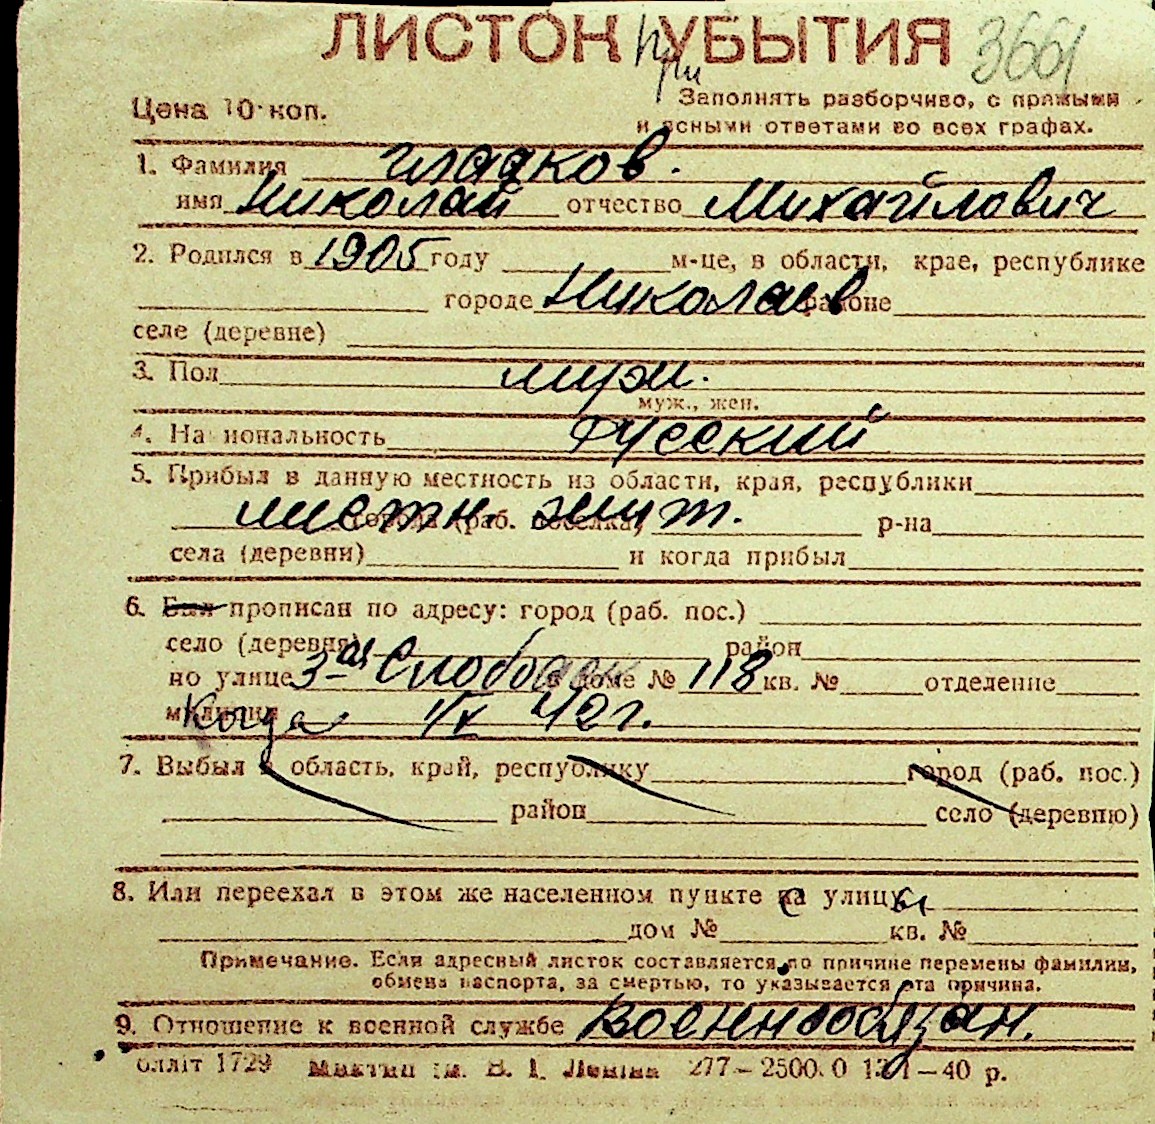 ЛИСТОК при УБЫТИЯ 3661
Цена 10 коп.
Заполнять разборчиво, с прямыми
и ясными ответами во всех графах.
1. Фамилия Гладков.
имя Николай отчество Михайлович
2. Родился в 1905 году м-це, в области, крае, республике
городе Николаев районе
селе (деревне)
3. Пол муж.
муж., жен.
4. Национальность Русский
5. Прибыл в данную местность из области, края, республики
местн. жит. города (раб. поселка) р-на
села (деревни) и когда прибыл
6. Был прописан по адресу: город (раб. пос.)
село (деревня) район
по улице 3-ая Слободск дом № 118 кв. № отделение
милиции Когда 1/IX 42 г.
7. Выбыл в область, край, республику город (раб. пос.)
район село (деревню)
8. Или переехал в этом же населенном пункте с улицы
дом № кв. №
Примечание. Если адресный листок составляется по причине перемены фамилии,
обмена паспорта, за смертью, то указывается эта причина.
9. Отношение к военной службе Военнообязан.
блліт 1729 ім. В. І. Леніна 277—2500.0 —40 р.